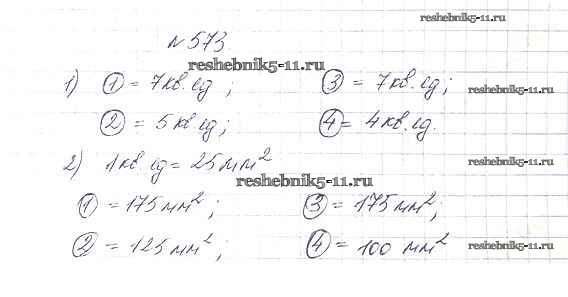 reshebnik5-11.ru
№573.
reshebnik5-11.ru
1) ① = 7кв.ед; ③ = 7кв.ед;
reshebnik5-11.ru
② = 5кв.ед; ④ = 4кв.ед.
2) 1кв.ед = 25мм²
reshebnik5-11.ru
reshebnik5-11.ru
① = 175мм²; ③ = 175мм²;
② = 125мм²; ④ = 100 мм²
reshebnik5-11.ru